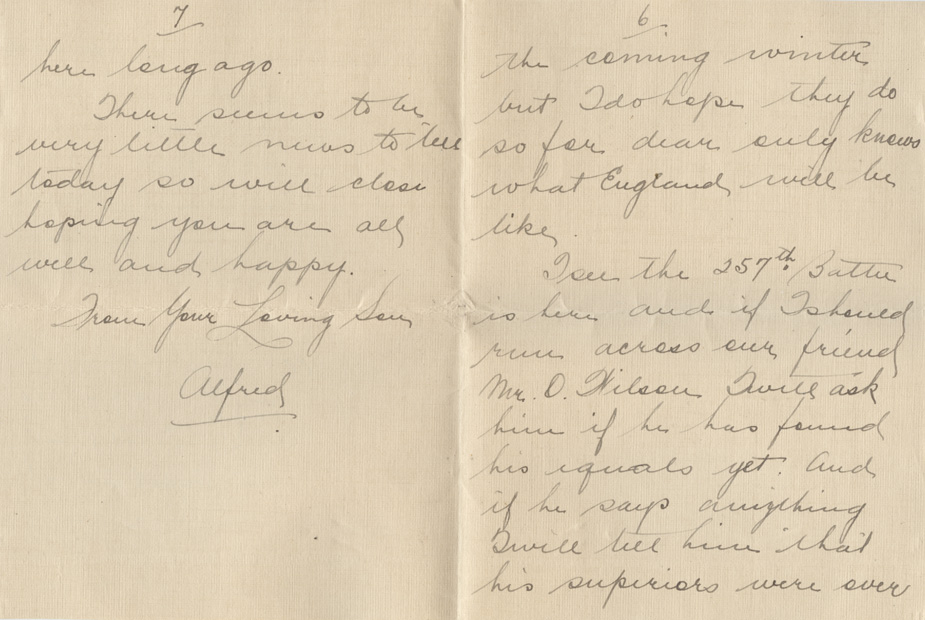 6
the coming winter
but I do hope they do
so for dear only knows
what England will be
like.
I see the 257th. Battn
is here and if I should
run across our friend
Mr. O. Wilson I will ask
him if he has found
his equals yet. And
if he says anything
I will tell him that
his superiors were over
7
here long ago.
There seems to be
very little news to tell
today so will close
hoping you are all
well and happy.
From Your Loving Son
Alfred